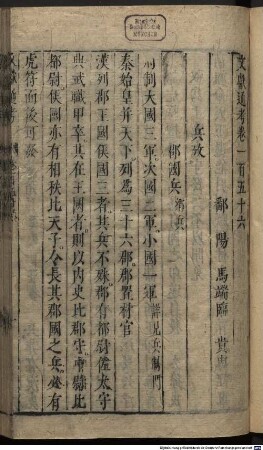 文獻通考卷一百五十六
鄱陽馬端臨貴與著
兵攷
郡國兵 鄉兵
周制大國三軍次國二軍小國一軍 詳見兵制門
秦始皇幷天下列為三十六郡郡置材官
漢列郡王國侯國三者其兵不殊郡有都尉佐太守
典武職甲卒其在王國者則以內史比郡守中尉比
都尉侯國亦有相秩比天子令長其郡國之兵必有
虎符而後可發